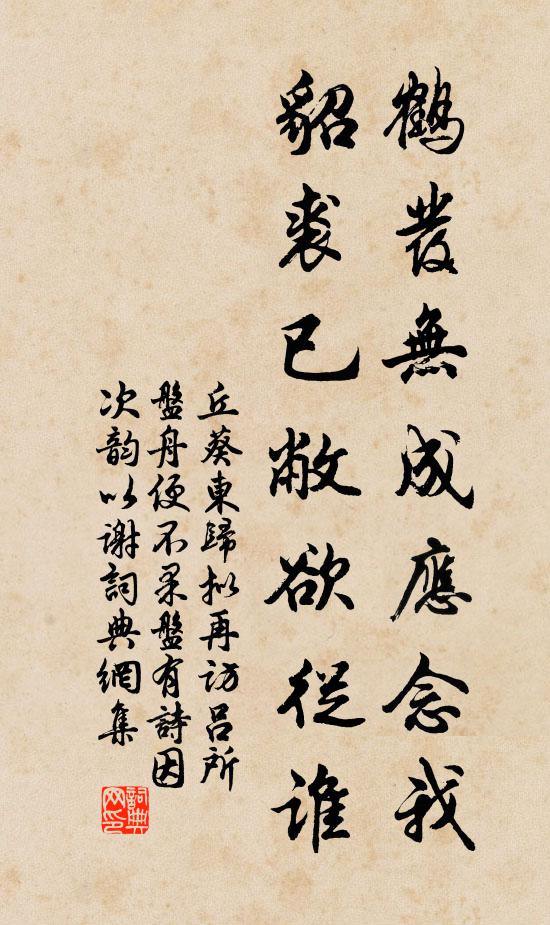 鶴發無成應念我
貂裘已敝欲從誰
丘葵東歸拟再访吕所
盤舟便不果盤有詩因
次韵以謝詞典網集
詞典網印